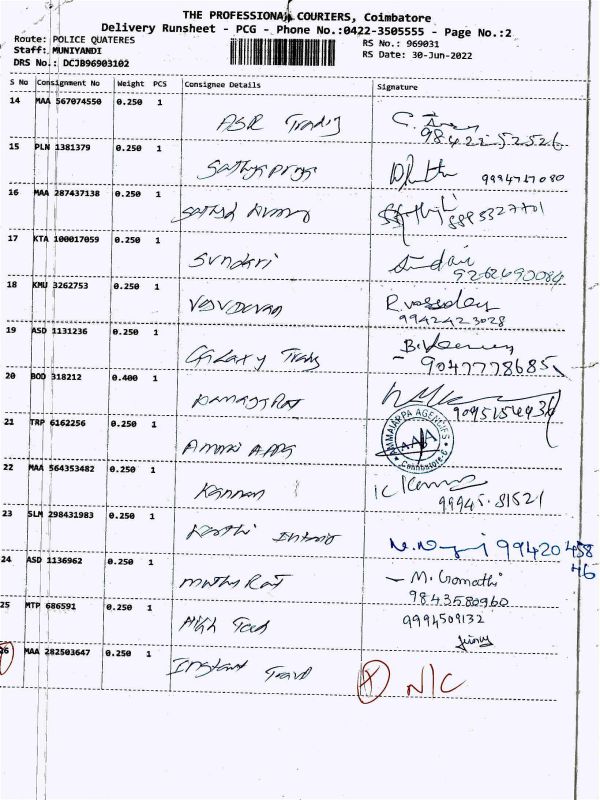 THE PROFESSIONAL COURIERS, Coimbatore
Delivery Runsheet - PCG - Phone No.:0422-3505555 - Page No.:2
Route: POLICE QUATERES
RS No.: 969031
Staff: MUNIYANDI
RS Date: 30-Jun-2022
DRS No.: DCJB96903102
S No Consignment No Weight PCS Consignee Details Signature
14 MAA 567074550 0.250 1
ASR Trading
98422 52526
15 PLN 1381379 0.250 1
Sathyapriya
16 MAA 287437138 0.250 1
Sathya
17 KTA 100017059 0.250 1
Sundari
18 KMU 3262753 0.250 1
Vasudevan R. Vasudev
9942423028
19 ASD 1131236 0.250 1
Galaxy Trads
9047778685
20 BOD 318212 0.400 1
21 TRP 6162256 0.250 1
AMMAIARPA AGENCIES
AAA
Coimbatore-6
22 MAA 564353482 0.250 1
Kannan
99945 81521
23 SLM 298431983 0.250 1
Karthi
99420 458
46
24 ASD 1136962 0.250 1
M. Gomathi
9843580960
25 MTP 686591 0.250 1
9994509132
26 MAA 282503647 0.250 1
Instant Travel
X N/C